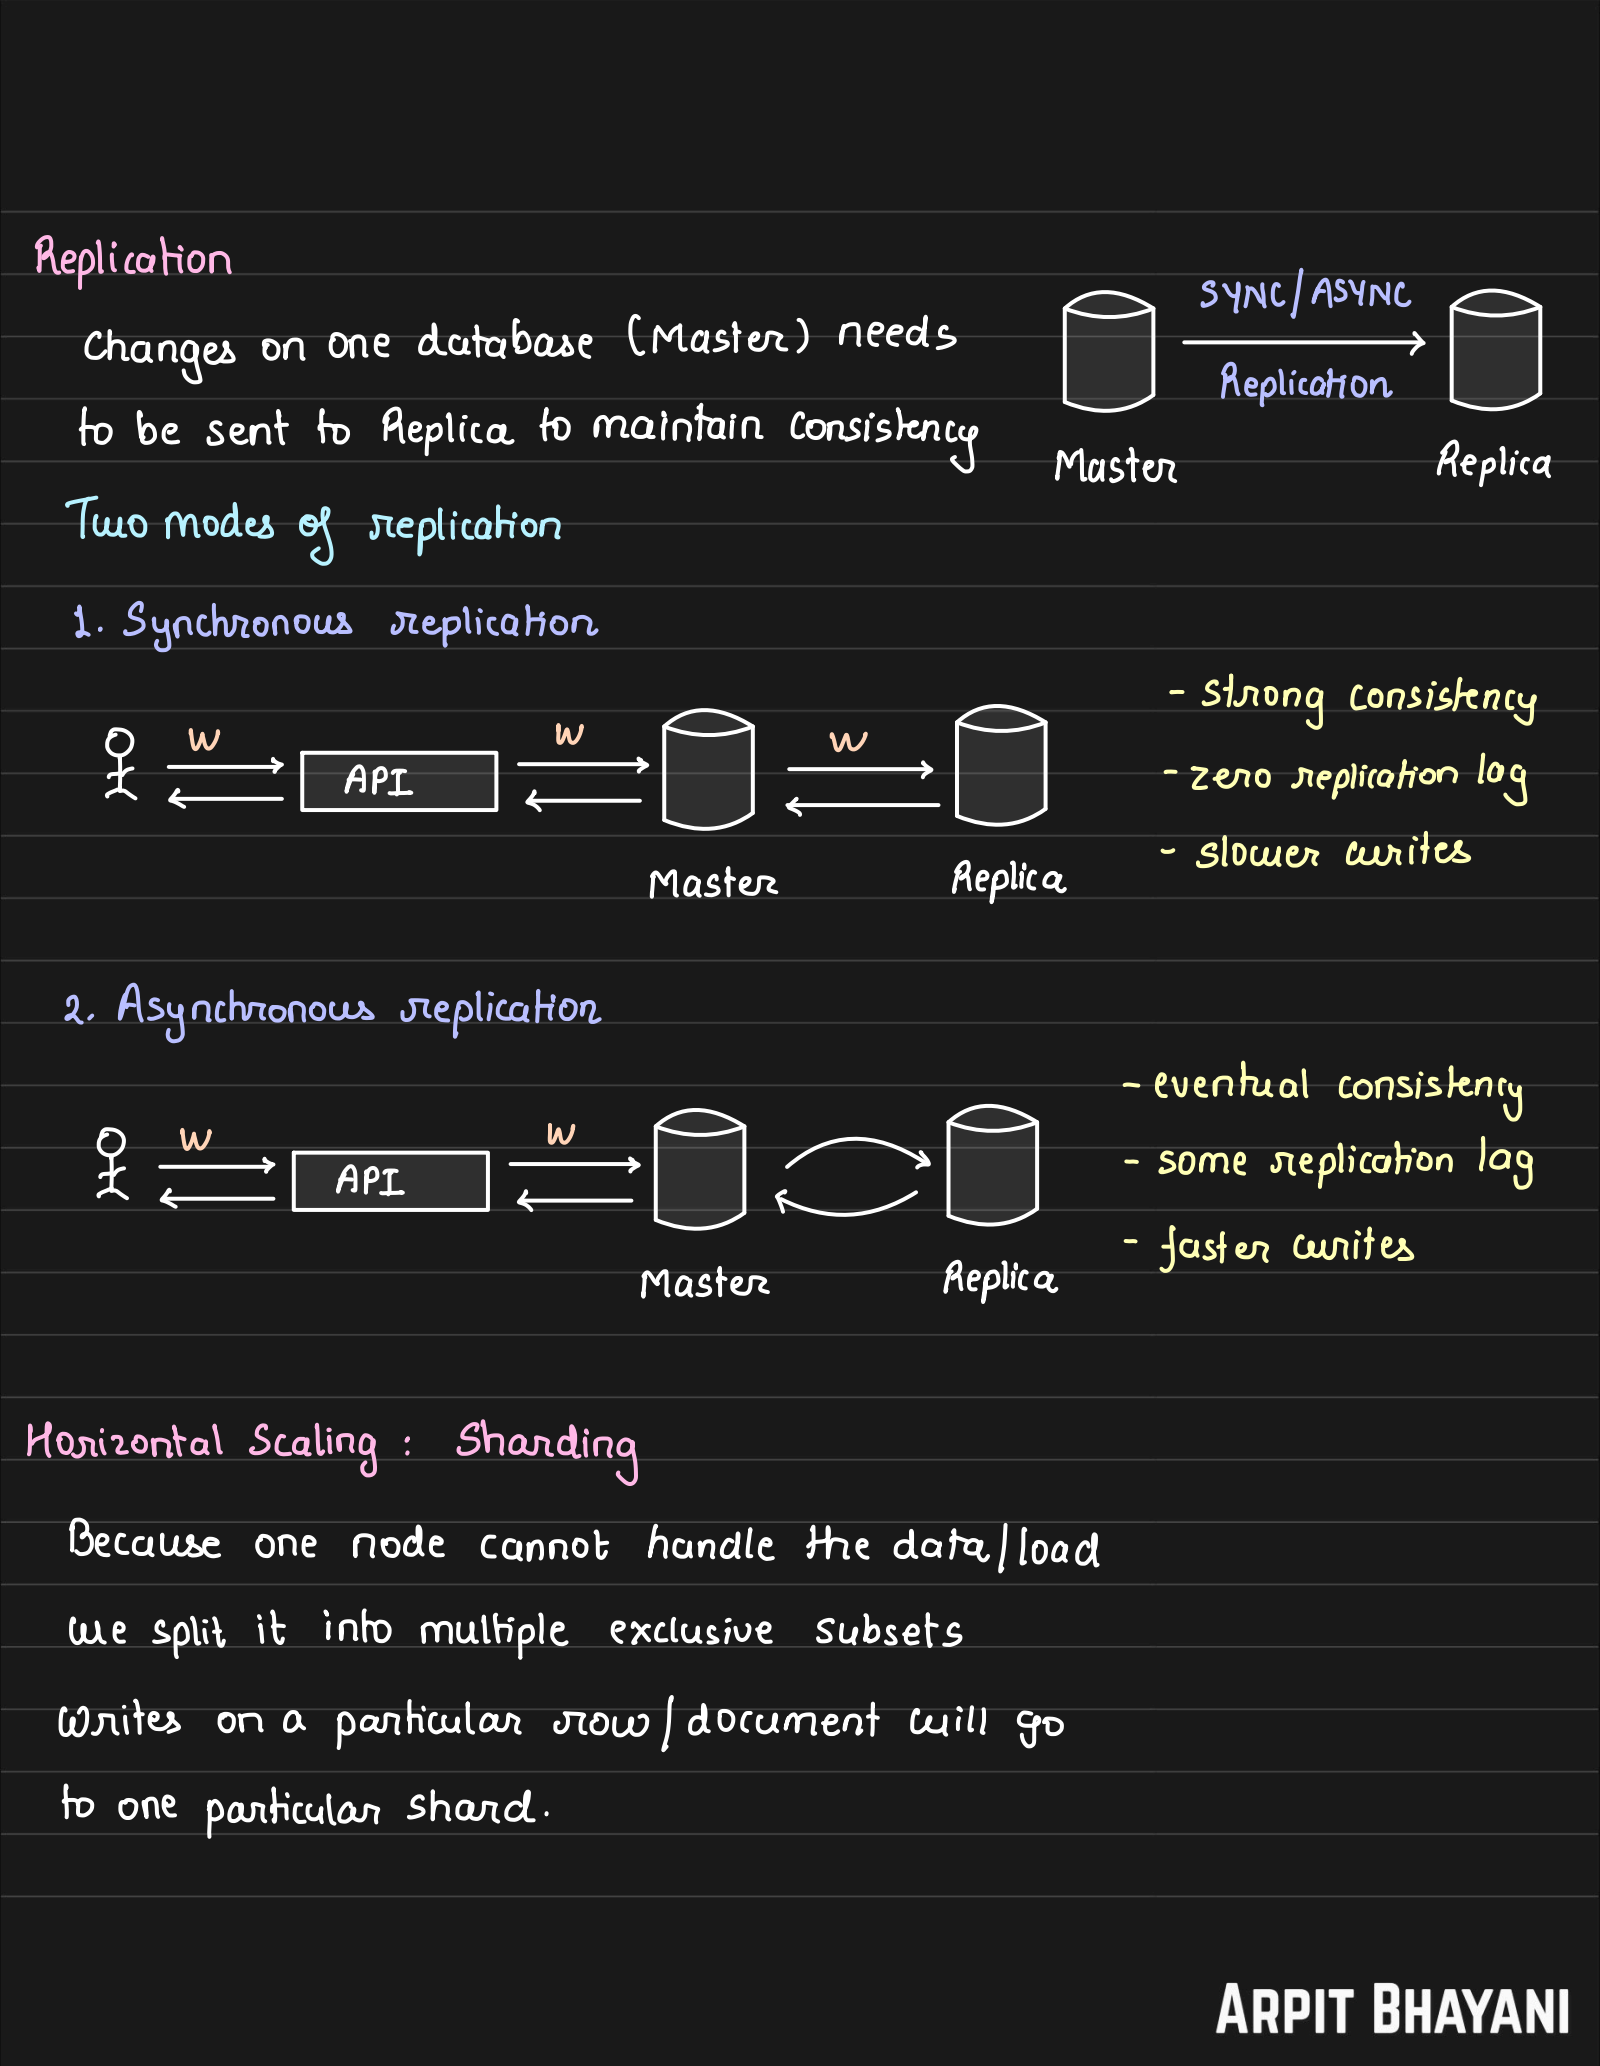 Replication
Changes on one database (Master) needs
to be sent to Replica to maintain consistency
SYNC/ASYNC
Replication
Master
Replica
Two modes of replication
1. Synchronous replication
W
W
W
API
Master
Replica
- strong consistency
- zero replication lag
- slower writes
2. Asynchronous replication
W
W
API
Master
Replica
- eventual consistency
- some replication lag
- faster writes
Horizontal Scaling : Sharding
Because one node cannot handle the data/load
we split it into multiple exclusive subsets
Writes on a particular row/document will go
to one particular shard.
ARPIT BHAYANI